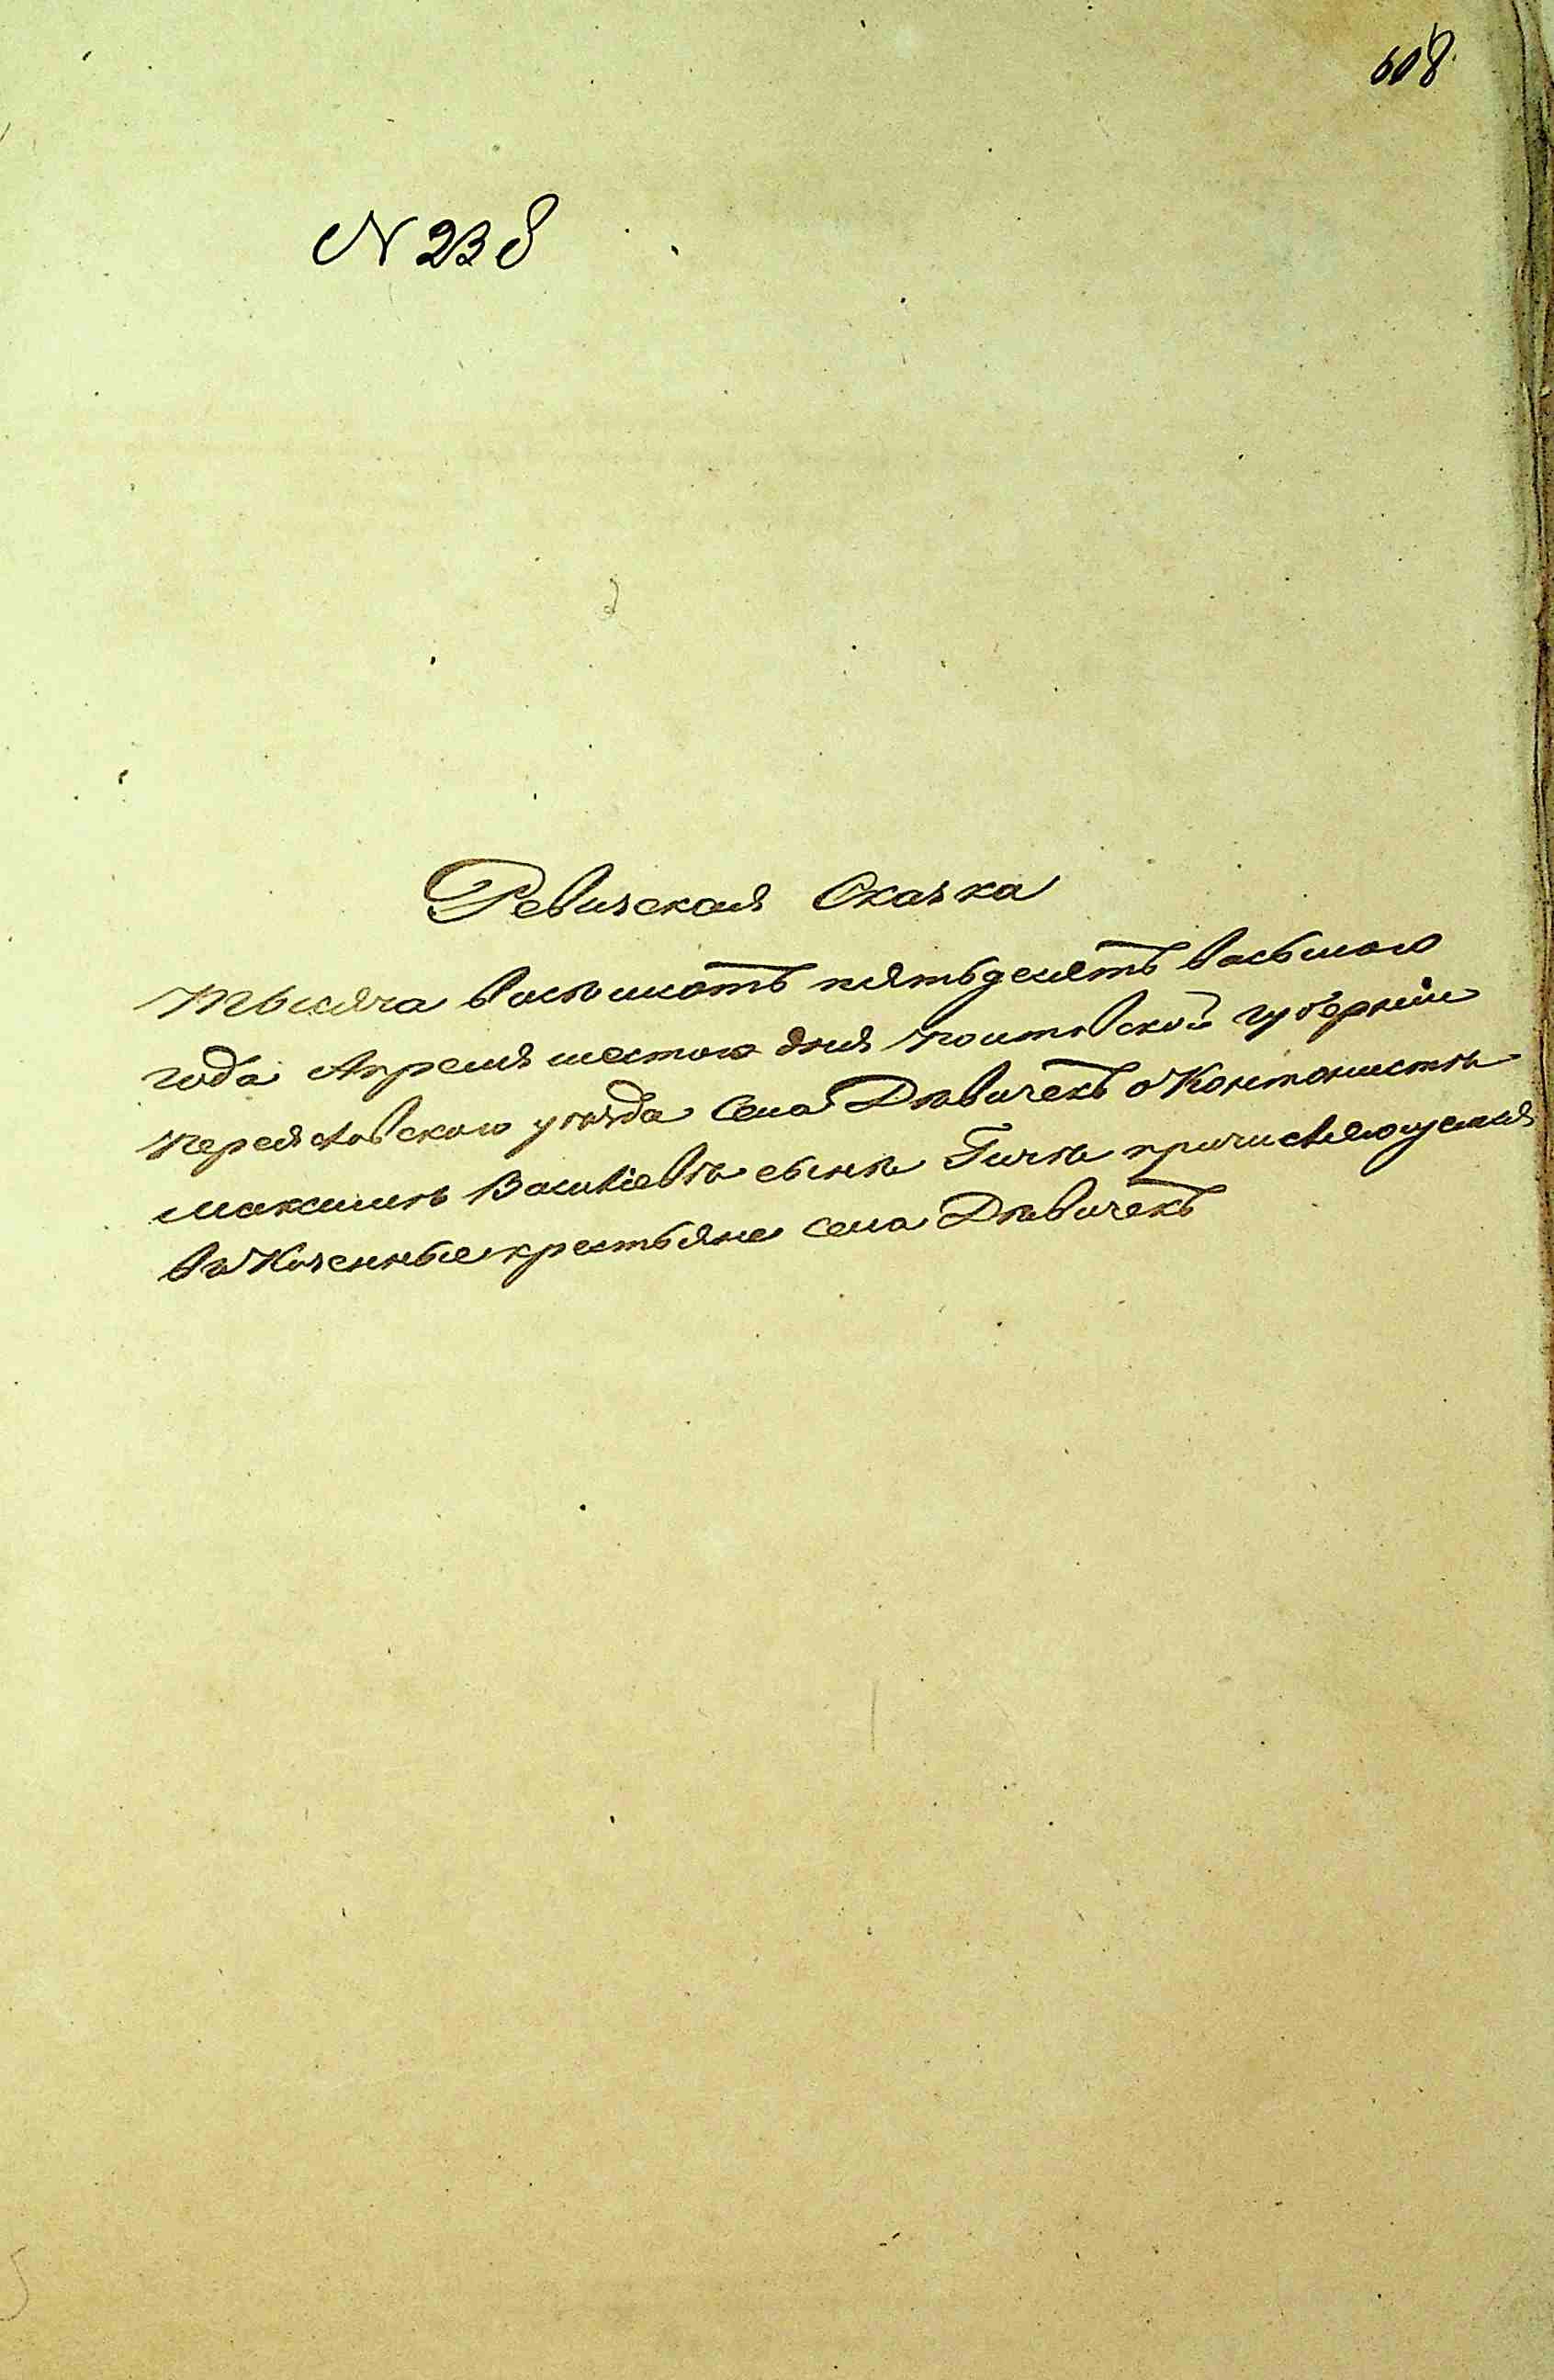 608
N 238
Ревизская Сказка
Тысяча восемсотъ пятьдесятъ васьмого
года Апреля шестого дня Полтавской губерніи
Переясловского уезда села Девичекъ о Контонисте
Максиме Василіева сына Гичка причисляющемся
въ Казенные крестьяне села Девичекъ